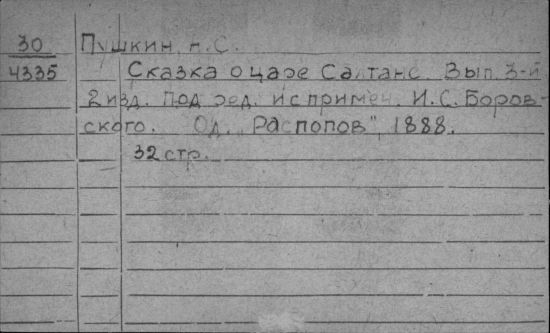 30 Пушкин, А.С.
4335 Сказка о царе Салтане. Вып. 3-й
2 изд. Под ред. и с примеч. И.С. Боров-
ского. Од. "Распопов", 1888.
32 стр.